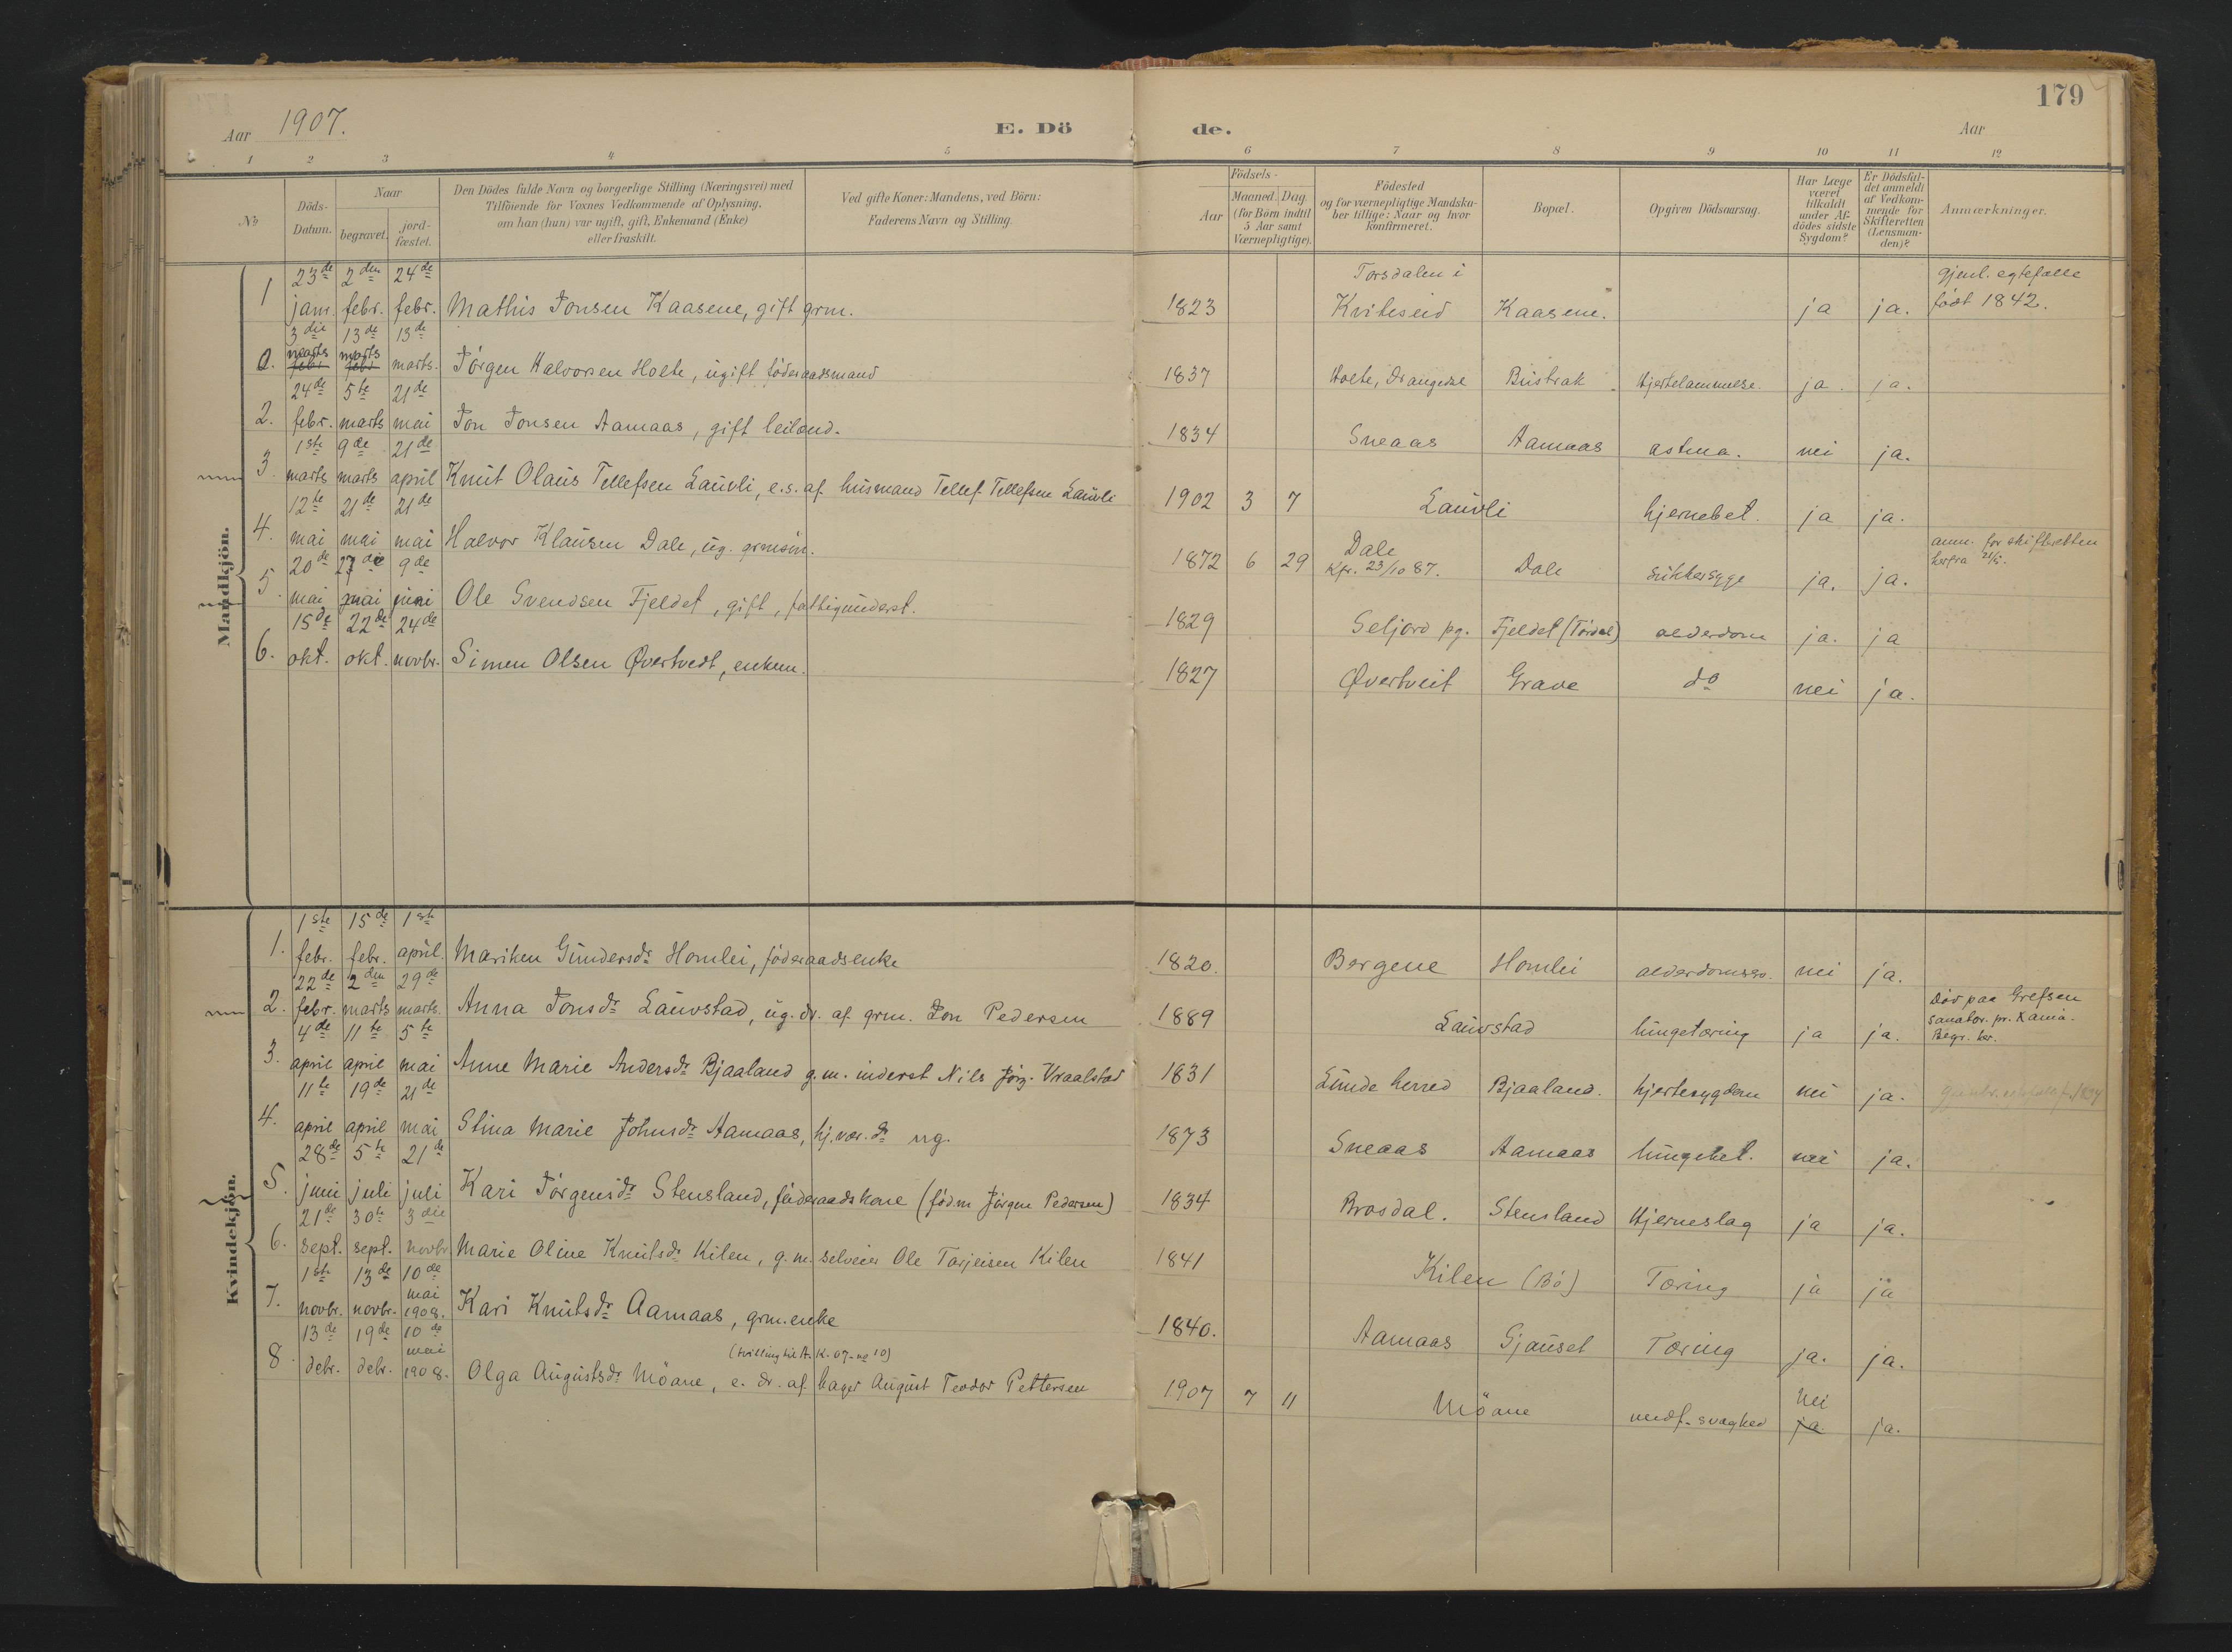 179
Aar 1907. E. Dö de. Aar
1 2 3 4 5 6 7 8 9 10 11 12
№ Döds-Datum. Naar begravet. jord-fæstet. Den Dödes fulde Navn og borgerlige Stilling (Næringsvei) med Tilföiende for Voxnes Vedkommende af Oplysning, om han (hun) var ugift, gift, Enkemand (Enke) eller fraskilt. Ved gifte Koner: Mandens, ved Börn: Faderens Navn og Stilling. Födsels- Aar Maaned. Dag. (for Börn indtil 5 Aar samt Værnepligtige). Födested og for værnepligtige Mandskaber tillige: Naar og hvor konfirmeret. Bopæl. Opgiven Dödsaarsag. Har Læge været tilkaldt under Afdödes sidste Sygdom? Er Dödsfaldet anmeldt af Vedkommende for Skifteretten (Lensmanden)? Anmærkninger.
Mandkjön.
1 23de jan. 2den febr. 24de febr. Mathis Jonsen Kaasene, gift grm. 1823 Torsdalen i Kviteseid Kaasene. ja ja. gjenl. egtefælle födt 1842.
0. 3die marts febr 13de marts febr 13de marts. Jörgen Halvorsen Holte, ugift föderaadsmand 1837 Holte, Drangedal Bustrak Hjertelammelse. ja. ja.
2. 24de febr. 5te marts 21de mai Jon Jonsen Aamaas, gift leilænd. 1834 Sneaas Aamaas astma. nei ja.
3. 1ste marts 9de marts 21de april Knut Olaus Tellefsen Lauvli, e.s. af husmand Tellef Tellefsen Lauvli 1902 3 7 Lauvli hjernebet. ja ja.
4. 12te mai 21de mai 21de mai Halvor Klausen Dale, ug. grmsøn. 1872 6 29 Dale Kfr. 23/10 87. Dale sukkersyge ja. ja. anm. for skifteretten herfra 21/5.
5. 20de mai 27die mai 9de juni Ole Svendsen Fjeldet, gift, fattigunderst. 1829 Seljord pg. Fjeldet (Tørdal) alderdom ja. ja
6. 15de okt. 22de okt. 24de novbr. Simen Olsen Øvertvedt, enkem. 1827 Øvertveit Grave do nei ja.
Kvindekjön.
1. 1ste febr. 15de febr. 1ste april. Mariken Gundersdr Homlei, föderaadsenke 1820. Bergene Homlei alderdomssv. nei ja.
2. 22de febr. 2den marts 29de marts. Anna Jonsdr Lauvstad, ug. dr. af grm. Jon Pedersen 1889 Lauvstad lungetæring ja ja. Död paa Grefsen sanator. pr. Xania. Begr. her.
3. 4de april 11te april 5te mai Anne Marie Andersdr Bjaaland g.m. inderst Nils Jörg. Vraalstad 1831 Lunde herred Bjaaland. hjertesygdom nei ja.
4. 11te april 19de april 21de mai Stina Marie Johnsdr Aamaas, hj.vær. dr ug. 1873 Sneaas Aamaas lungebet. nei ja.
5. 28de juni 5te juli 21de juli Kari Jörgensdr Stensland, föderaadskone (föd.m Jörgen Pedersen) 1834 Brosdal. Stensland Hjerneslag ja ja.
6. 21de sept. 30te sept. 3die novbr. Marie Oline Knutsdr Kilen, g.m. selveier Ole Tarjeisen Kilen 1841 Kilen (Bö) Tæring ja ja
7. 1ste novbr. 13de novbr. 10de mai 1908. Kari Knutsdr Aamaas, grm.enke 1840. Aamaas Gjauset Tæring ja. ja.
(tvilling til A. K. 07-no 10)
8. 13de debr. 19de debr. 10de mai 1908. Olga Augustsdr Möane, e. dr. af bager August Teodor Pettersen 1907 7 11 Möane medf. svaghed nei ja. ja.